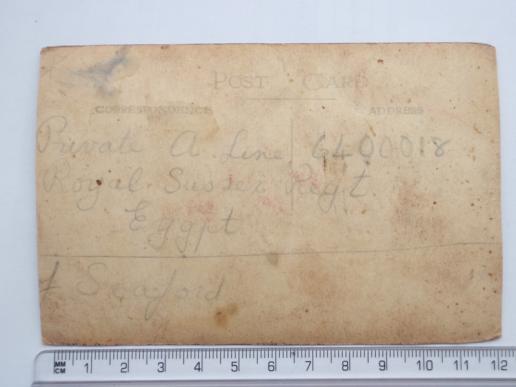 POST CARD
CORRESPONDENCE ADDRESS
Private A Line 6400018
Royal Sussex Regt
Egypt
Seaford
MM
CM 1 2 3 4 5 6 7 8 9 10 11 12